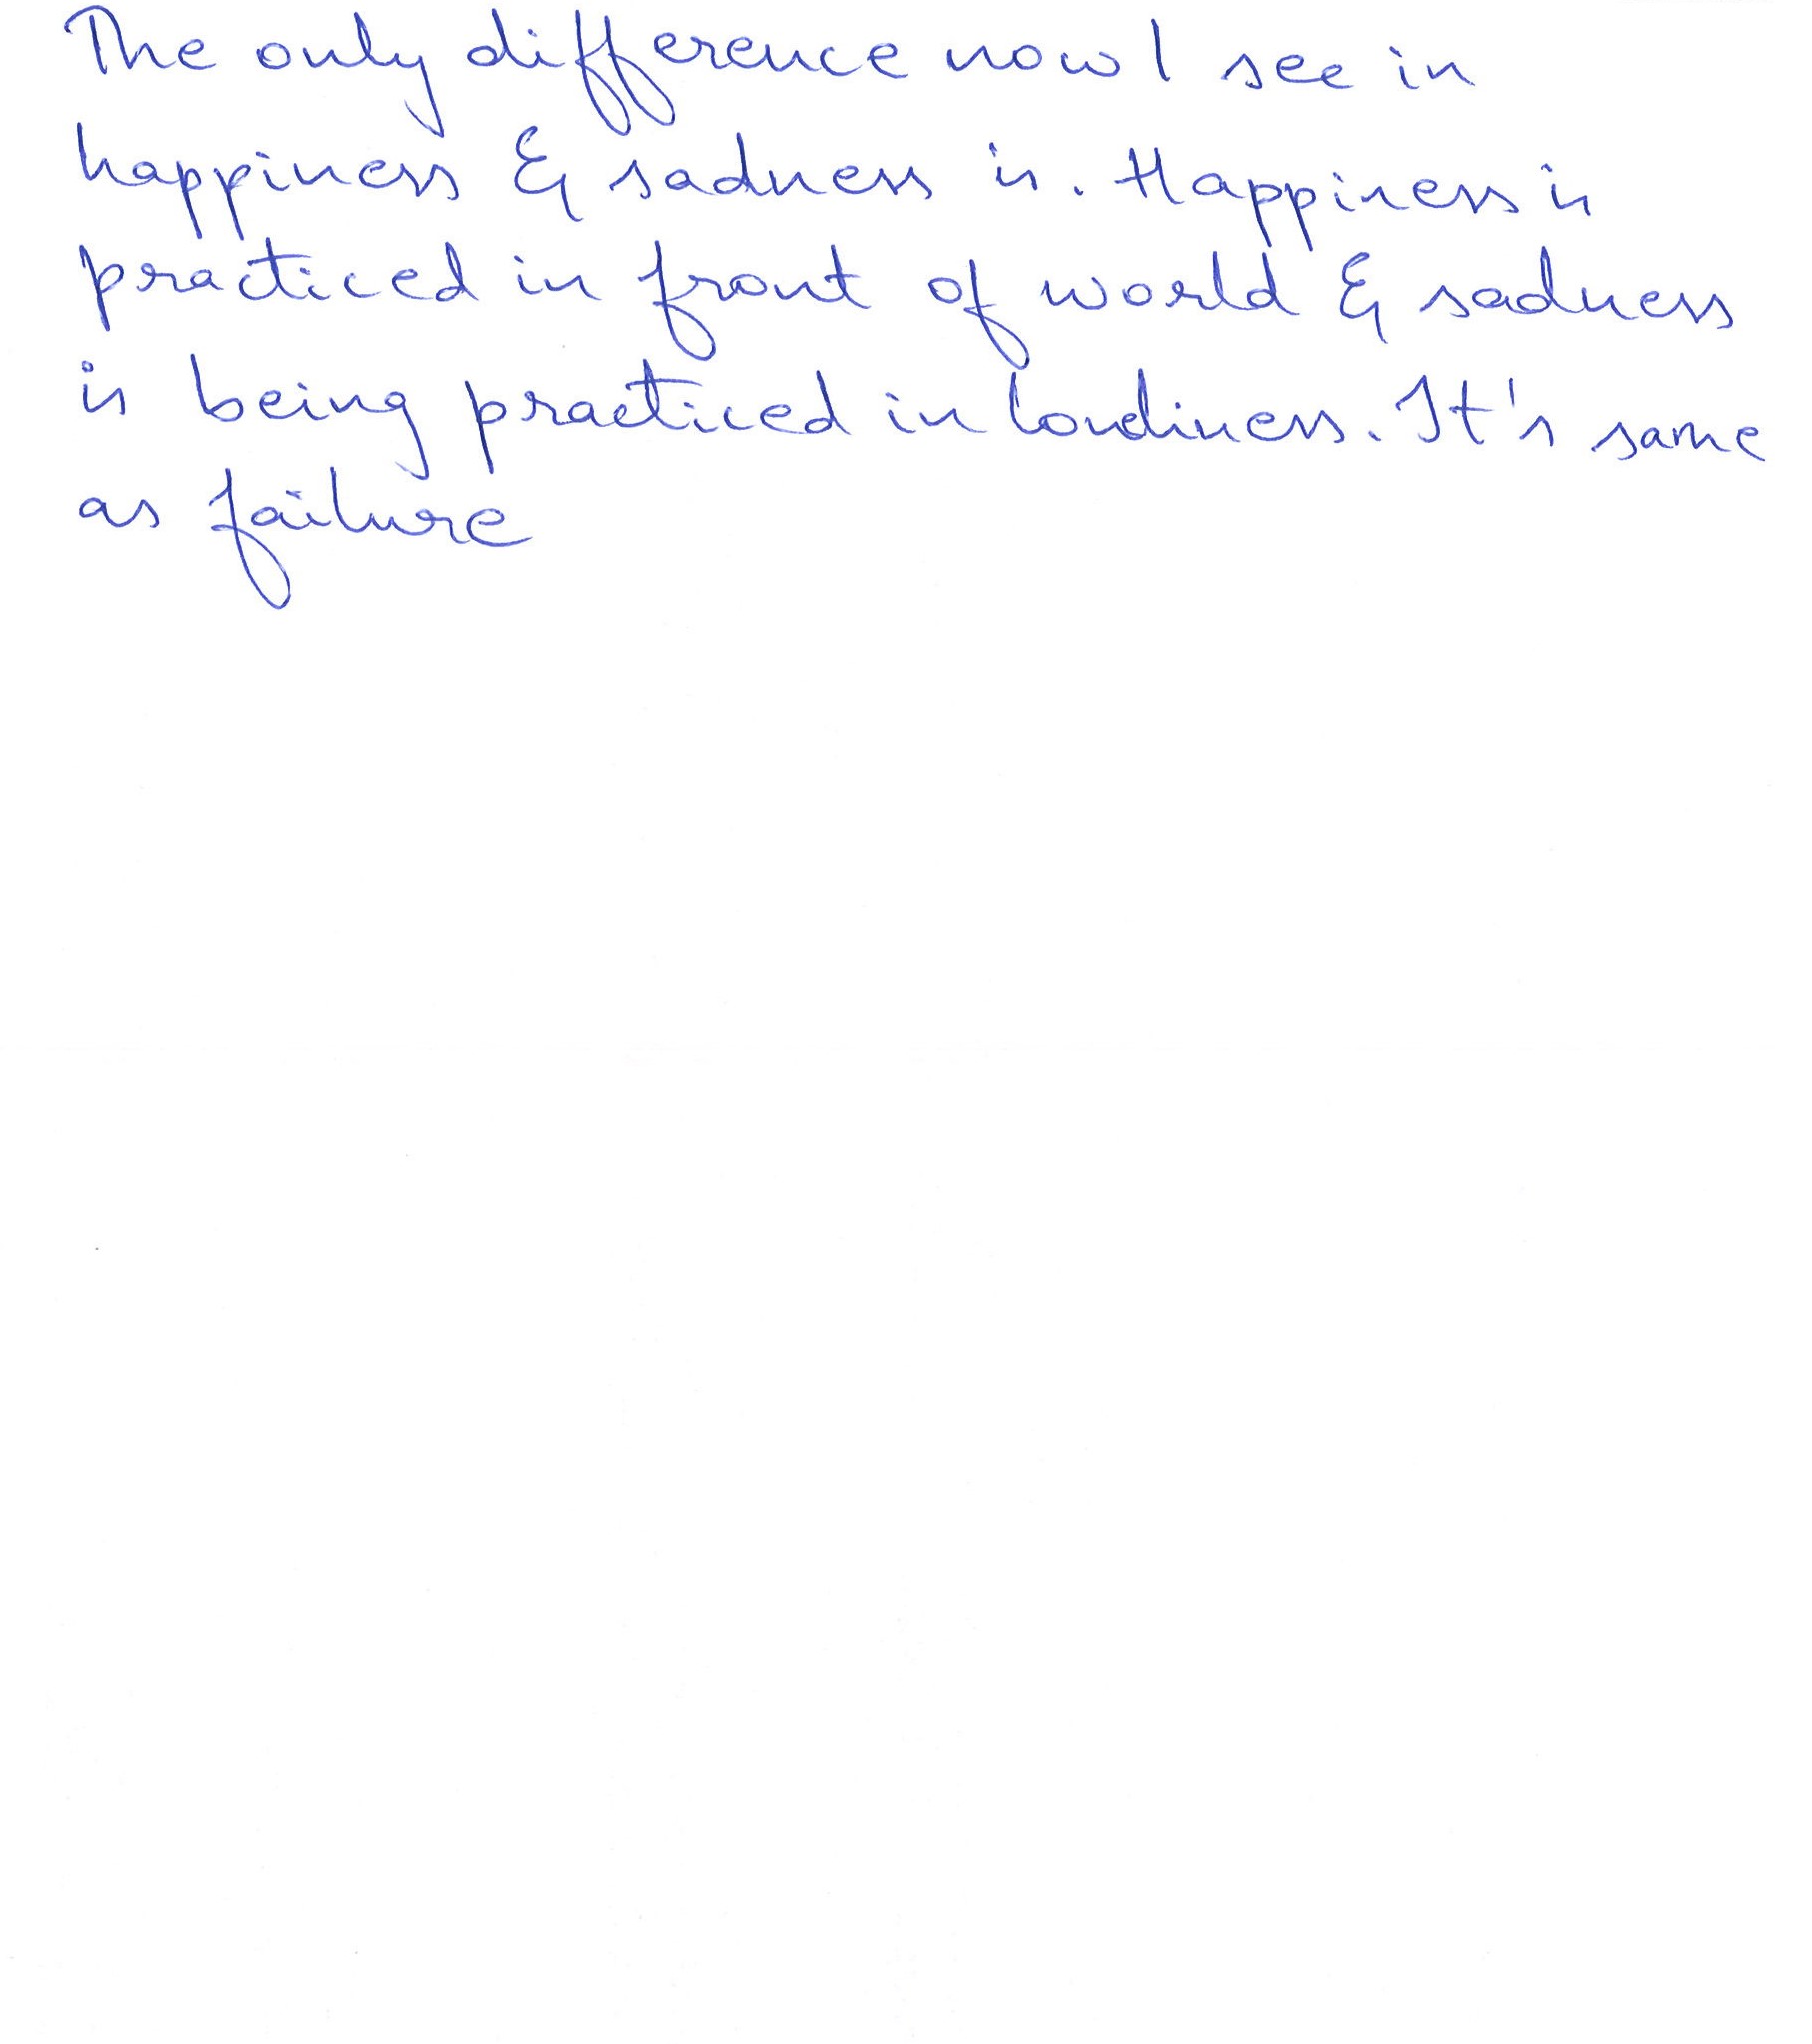 The only difference now I see in
happiness & sadness is. Happiness is
practiced in front of world & sadness
is being practiced in loneliness. It's same
as failure